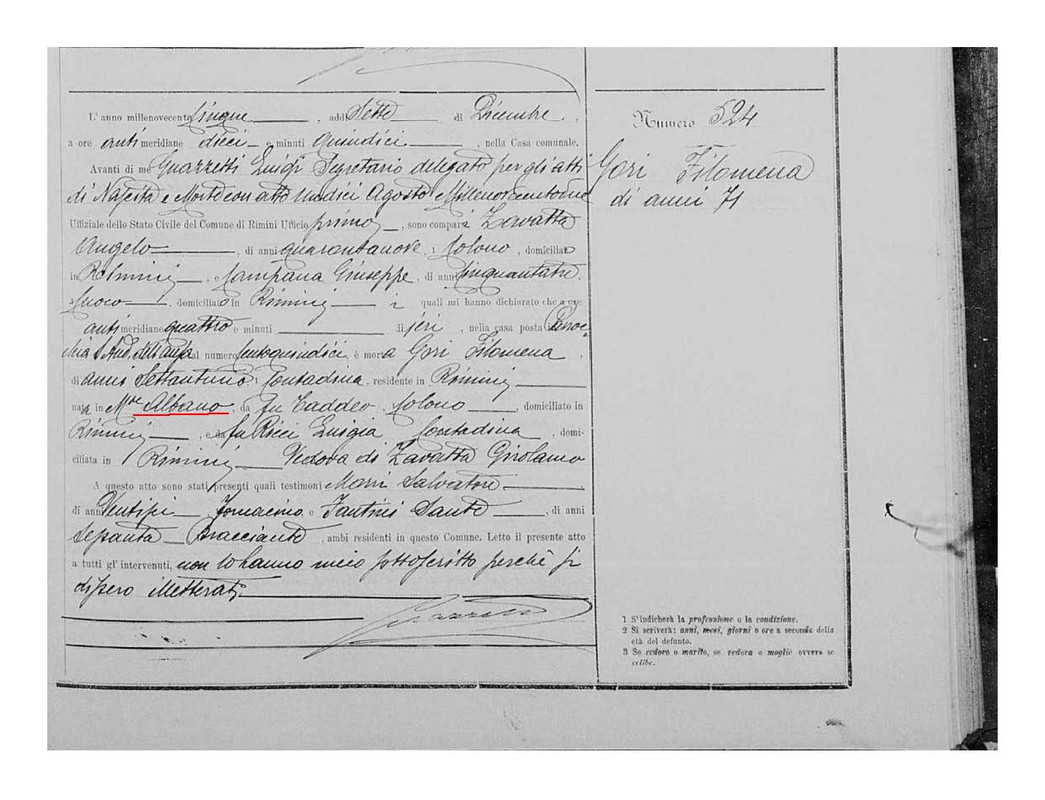 L'anno millenovecento Cinque, addì Sette di Dicembre,
a ore anti meridiane dieci e minuti quindici, nella Casa comunale.
Avanti di me Guazzetti Luigi Segretario delegato per gli atti
di Nascita e Morte con atto Undici Agosto Millenovecentouno
Uffiziale dello Stato Civile del Comune di Rimini Ufficio primo, sono comparsi Zavatta
Angelo, di anni quarantanove, Colono, domiciliato
in Rimini, e Campana Giuseppe, di anni cinquantatre,
Cuoco, domiciliato in Rimini i quali mi hanno dichiarato che a ore
anti meridiane quattro e minuti di jeri, nella casa posta Parroc
chia S. And. dell'Ausa al numero centoquindici, è morta Gori Filomena,
di anni Settantuno, Contadina, residente in Rimini
nata in Mte Albano, da fu Taddeo, Colono, domiciliato in
Rimini, e da fu Ricci Luigia, contadina, domi-
ciliata in Rimini Vedova di Zavatta Girolamo
A questo atto sono stati presenti quali testimoni Morri Salvatore,
di anni Ventisei, fornacino e Fantini Sante, di anni
Sessanta Bracciante, ambi residenti in questo Comune. Letto il presente atto
a tutti gl'intervenuti, non lo hanno meco sottoscritto perchè si
dissero illetterati.
Guazzetti
Numero 524
Gori Filomena
di anni 71
1 S'indicherà la professione o la condizione.
2 Si scriverà: anni, mesi, giorni o ore a seconda della
età del defunto.
3 Se vedovo o marito, se vedova o moglie ovvero se
celibe.